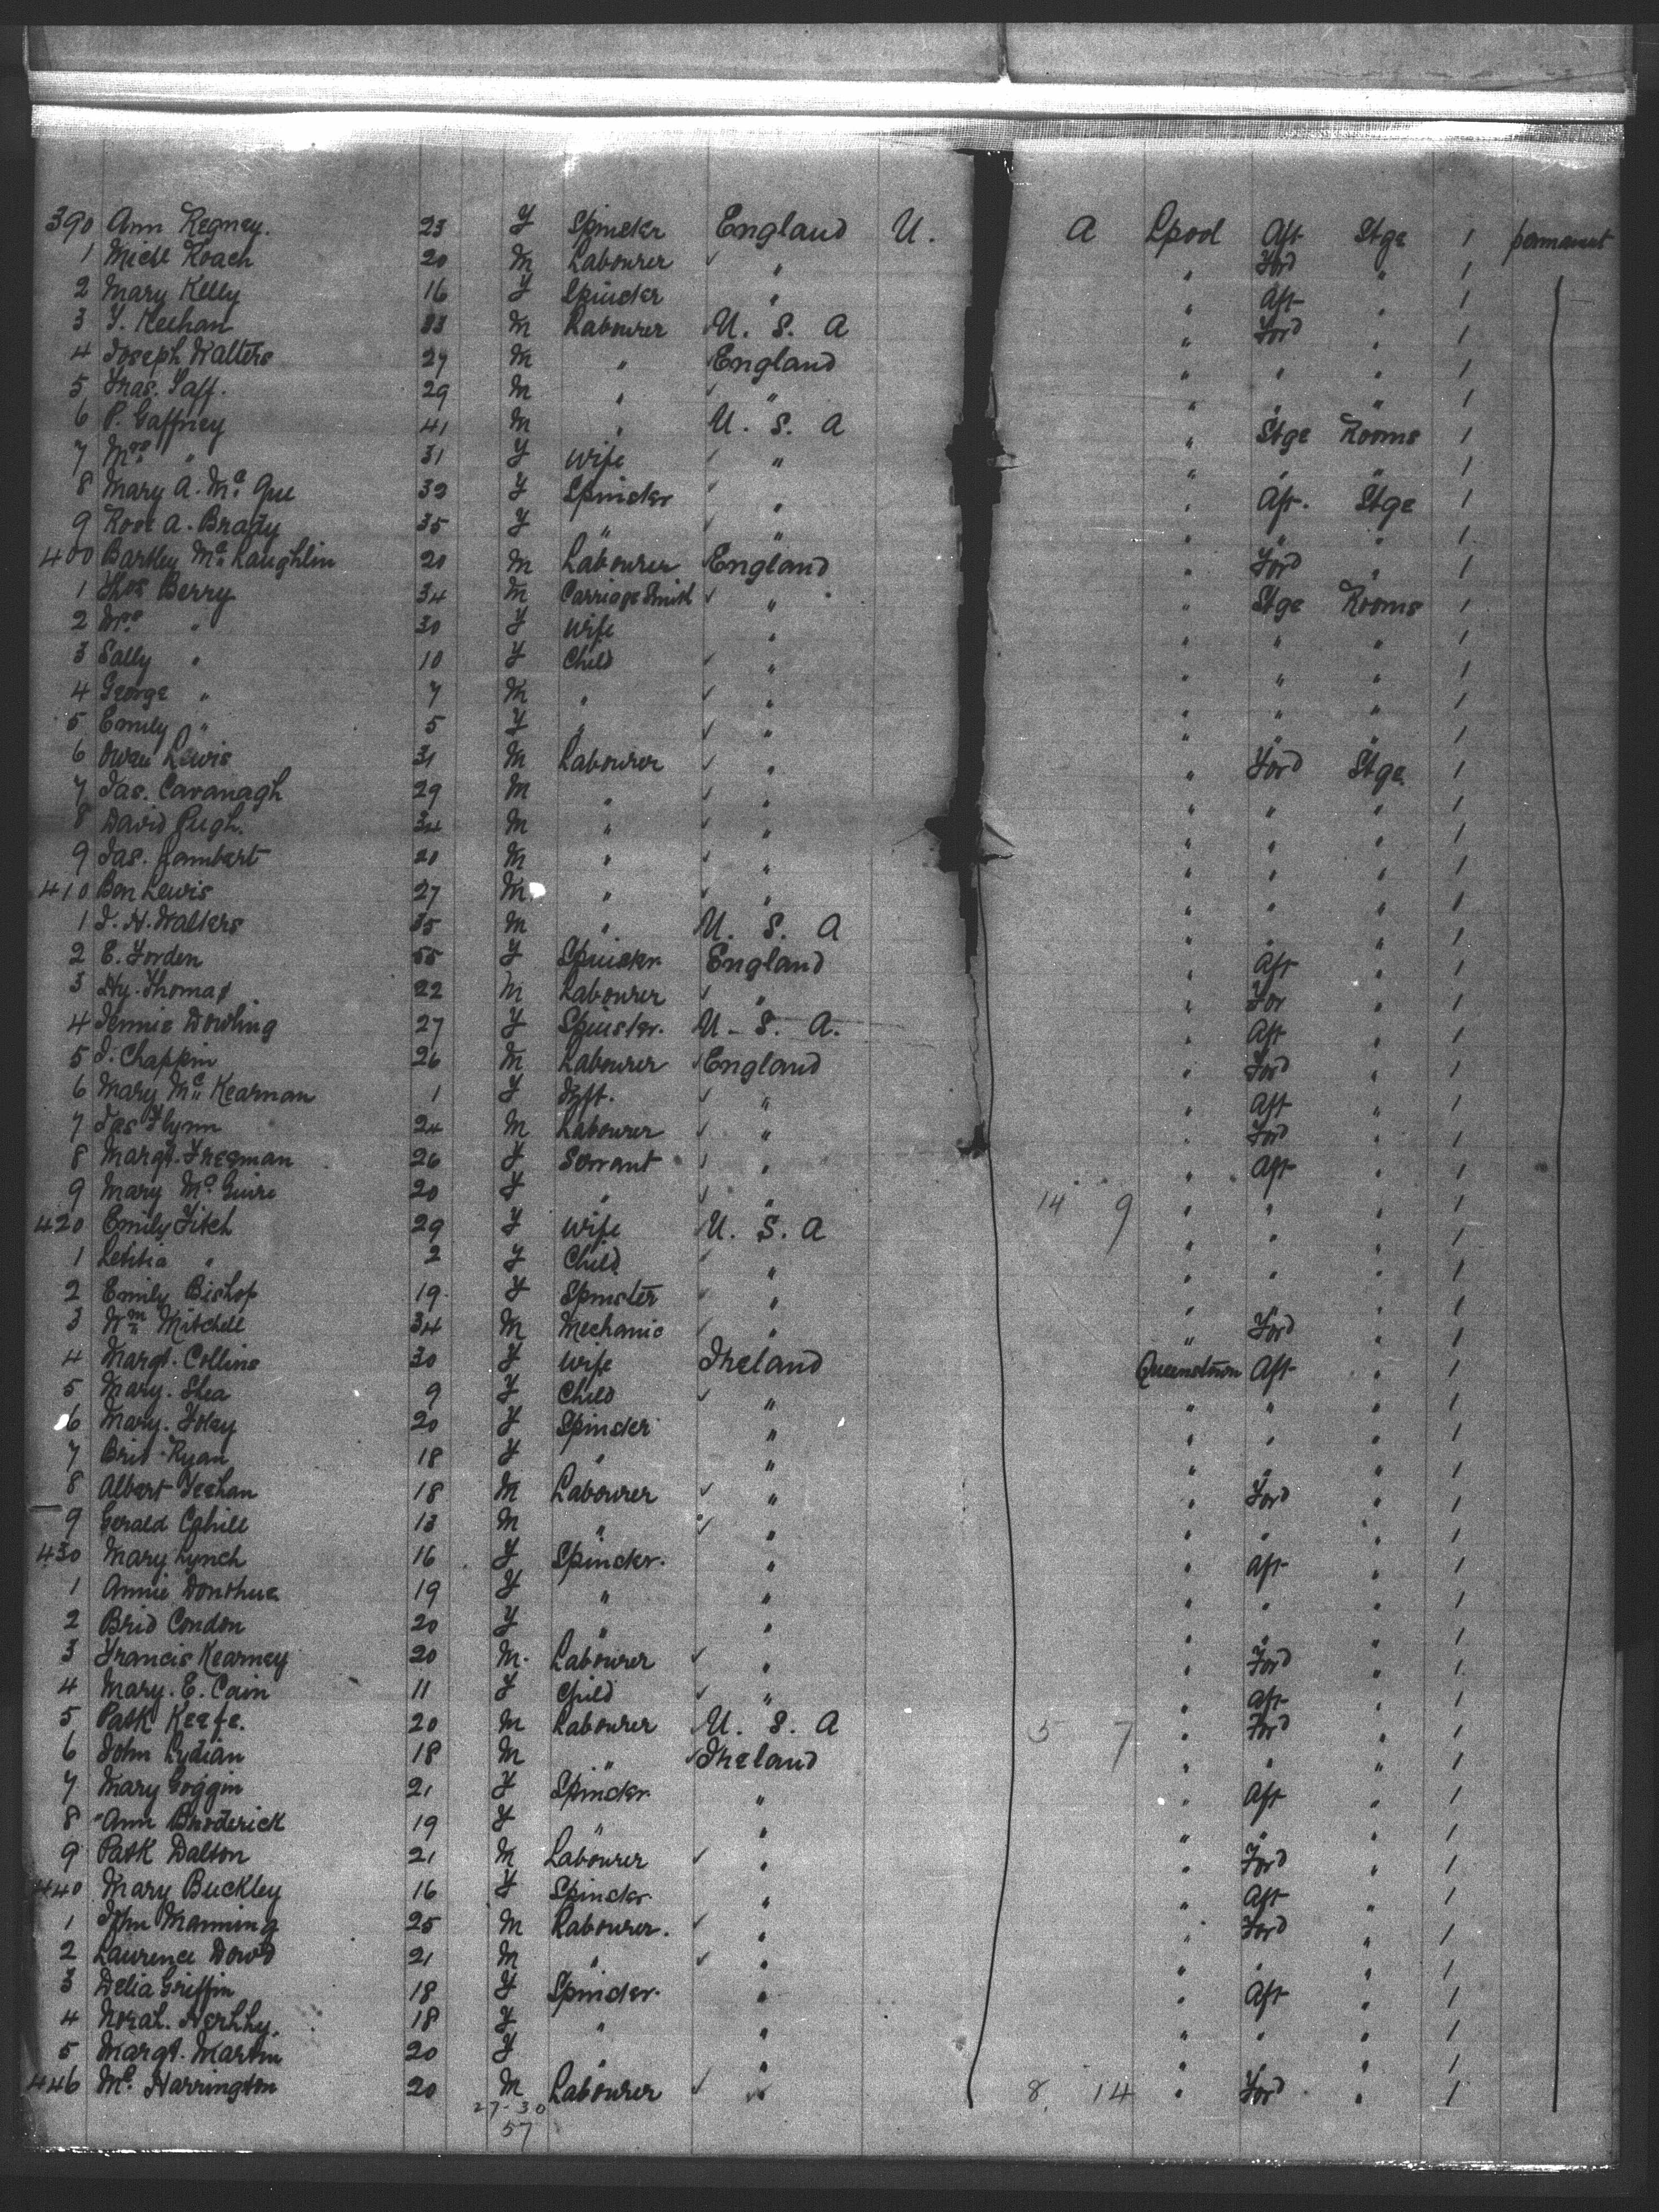 390 Ann Regney. 23 F Spinster England U. A Lpool Aft Stge 1 permanent
1 Michl Roach 20 M Labourer ✓ " " Ford " 1
2 Mary Kelly 16 F Spinster " " Aft " 1
3 T. Keehan 33 M Labourer U. S. A " Ford " 1
4 Joseph Walters 27 M " England " " " 1
5 Fras. Taff. 29 M " ✓ " " " " 1
6 P. Gaffney 41 M " U. S. A " Stge Rooms 1
7 Mrs " 31 F Wife ✓ " " " " 1
8 Mary A. Mc Gue 32 F Spinster ✓ " " Aft. Stge 1
9 Rose A. Brady 35 F " ✓ " " " " 1
400 Bartley Mc Laughlin 20 M Labourer England " Ford " 1
1 Thos Berry 34 M Carriage Smith ✓ " " Stge Rooms 1
2 Mrs " 30 F Wife " " " " 1
3 Sally " 10 F Child ✓ " " " " 1
4 George " 7 M " ✓ " " " " 1
5 Emily " 5 F " ✓ " " " " 1
6 Owen Lewis 31 M Labourer ✓ " " Ford Stge 1
7 Jas. Cavanagh 29 M " ✓ " " " " 1
8 David Pugh. 34 M " ✓ " " " " 1
9 Jas. 20 M " ✓ " " " " 1
410 Ben Lewis 27 M " ✓ " " " " 1
1 J. H. Walters 35 M " U. S. A " " " 1
2 E. Forden 55 F Spinster England " Aft " 1
3 Hy. Thomas 22 M Labourer ✓ " " For " 1
4 Jennie Dowling 27 F Spinster. U. S. A. " Aft " 1
5 J. Chapkin 26 M Labourer England " Ford " 1
6 Mary Mc Kearnan 1 F Inft. ✓ " " Aft " 1
7 Jas Flynn 24 M Labourer ✓ " " Ford " 1
8 Margt. Freeman 26 F Servant ✓ " " Aft " 1
9 Mary Mc Guire 20 F " ✓ " 14 9 " " " 1
420 Emily Fitch 29 F Wife U. S. A " " " 1
1 Letitia " 2 F Child ✓ " " " " 1
2 Emily Bishop 19 F Spinster ✓ " " " " 1
3 Wm Mitchell 34 M Mechanic ✓ " " Ford " 1
4 Margt. Collins 30 F Wife Ireland Queenstown Aft " 1
5 Mary. Shea 9 F Child ✓ " " " " 1
6 Mary. Foley 20 F Spinster " " " " 1
7 Brid Ryan 18 F " " " " " 1
8 Albert Feehan 18 M Labourer ✓ " " Ford " 1
9 Gerald Cahill 13 M " ✓ " " " " 1
430 Mary Lynch 16 F Spinster. " " Aft " 1
1 Annie Donohue 19 F " " " " " 1
2 Brid Condon 20 F " " " " " 1
3 Francis Kearney 20 M. Labourer ✓ " " Ford " 1
4 Mary. E. Cain 11 F Child ✓ " " Aft " 1
5 Patk Keefe. 20 M Labourer U. S. A 5 7 " Ford " 1
6 John Lydian 18 M " Ireland " " " 1
7 Mary Goggin 21 F Spinster " " Aft " 1
8 Ann Broderick 19 F " " " " " 1
9 Patk Dalton 21 M Labourer ✓ " " Ford " 1
440 Mary Buckley 16 F Spinster " " Aft " 1
1 John Manning 25 M Labourer. ✓ " " Ford " 1
2 Laurence Dowd 21 M " ✓ " " " " 1
3 Delia Griffin 18 F Spinster. " " Aft " 1
4 Norah. 18 F " " " " " 1
5 Margt. Martin 20 F " " " " " 1
446 Ml. Harrington 20 M Labourer ✓ " 8. 14 " Ford " 1
27-30
57